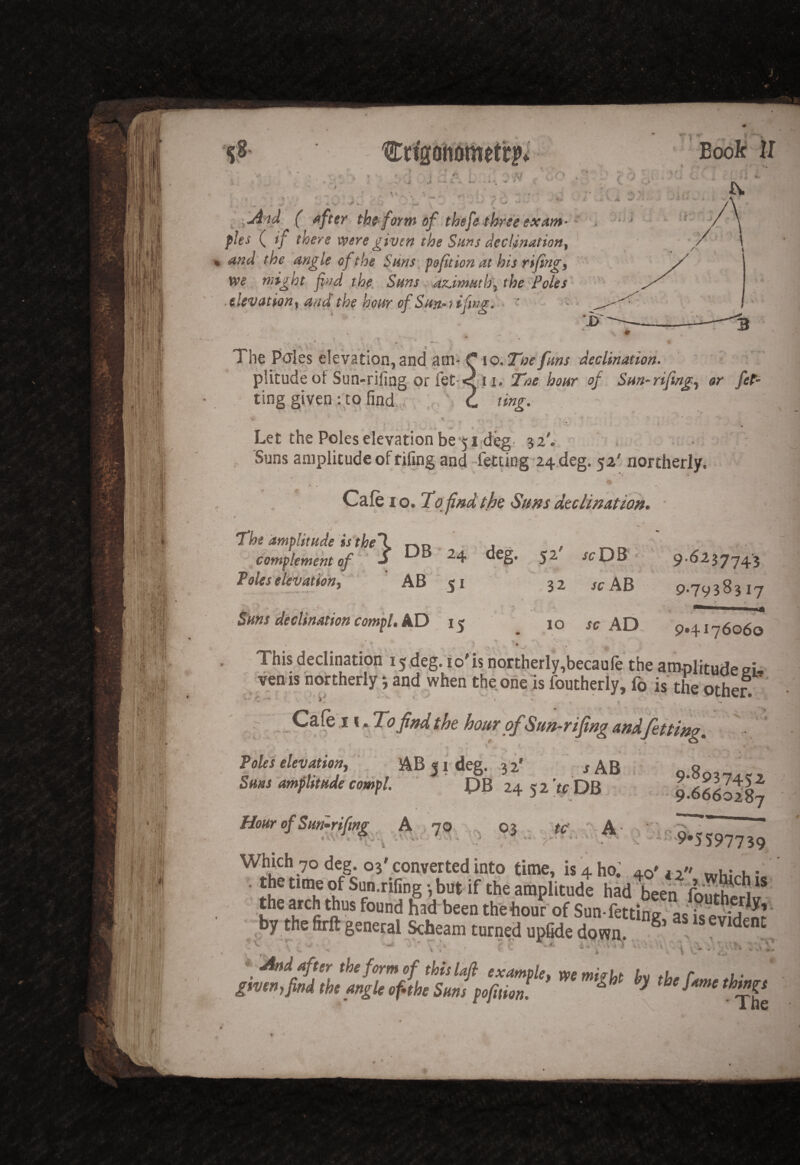 58 Trigonometry. Book II
And ( after the form of theſe three exam-
ples ( if there were given the Suns declination,
and the angle of the Suns poſition at his riſing,
we might find the Suns azimuth, the Poles
elevation, and the hour of Sun-riſing.
A
D B
The Poles elevation, and am- { 10. The ſuns declination.
plitude of Sun-riſing or ſet- { 11. The hour of Sun-riſing, or ſet-
ting given : to find { ting.
Let the Poles elevation be 51 deg. 32'.
Suns amplitude of riſing and ſetting 24 deg. 52' northerly.
Caſe 10. To find the Suns declination.
The amplitude is the }
complement of } DB 24 deg. 52' sc DB 9.6237743
Poles elevation, AB 51 32 sc AB 9.7938317
Suns declination compl. AD 15 . 10 sc AD 9.4176060
This declination 15 deg. 10' is northerly, becauſe the amplitude gi-
ven is northerly ; and when the one is ſoutherly, ſo is the other.
Caſe 11. To find the hour of Sun-riſing and ſetting.
Poles elevation, AB 51 deg. 32' s AB 9.8937452
Suns amplitude compl. DB 24 52 'tc DB 9.6660287
Hour of Sun-riſing A 70 03 tc A 9.5597739
Which 70 deg. 03' converted into time, is 4 ho. 40' 12", which is
the time of Sun.riſing ; but if the amplitude had been ſoutherly,
the arch thus found had been the hour of Sun-ſetting, as is evident
by the firſt general Scheam turned upſide down.
And after the form of this laſt example, we might by the ſame things
given, find the angle of the Suns poſition.
The